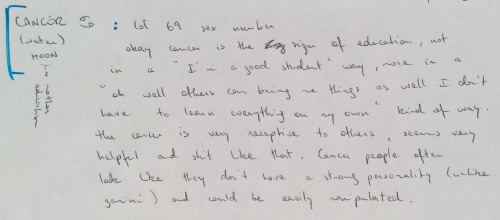 CANCER ♋ : lol 69 sex number
(water)
MOON
↓
mother
education
okay cancer is the sign of education, not
in a "I'm a good student" way, more in a
"oh well others can bring me things as well I don't
have to learn everything on my own" kind of way.
the cancer is very receptive to others, seems very
helpful and shit like that. Cancer people often
look like they don't have a strong personality (unlike
gemini) and could be easily manipulated.